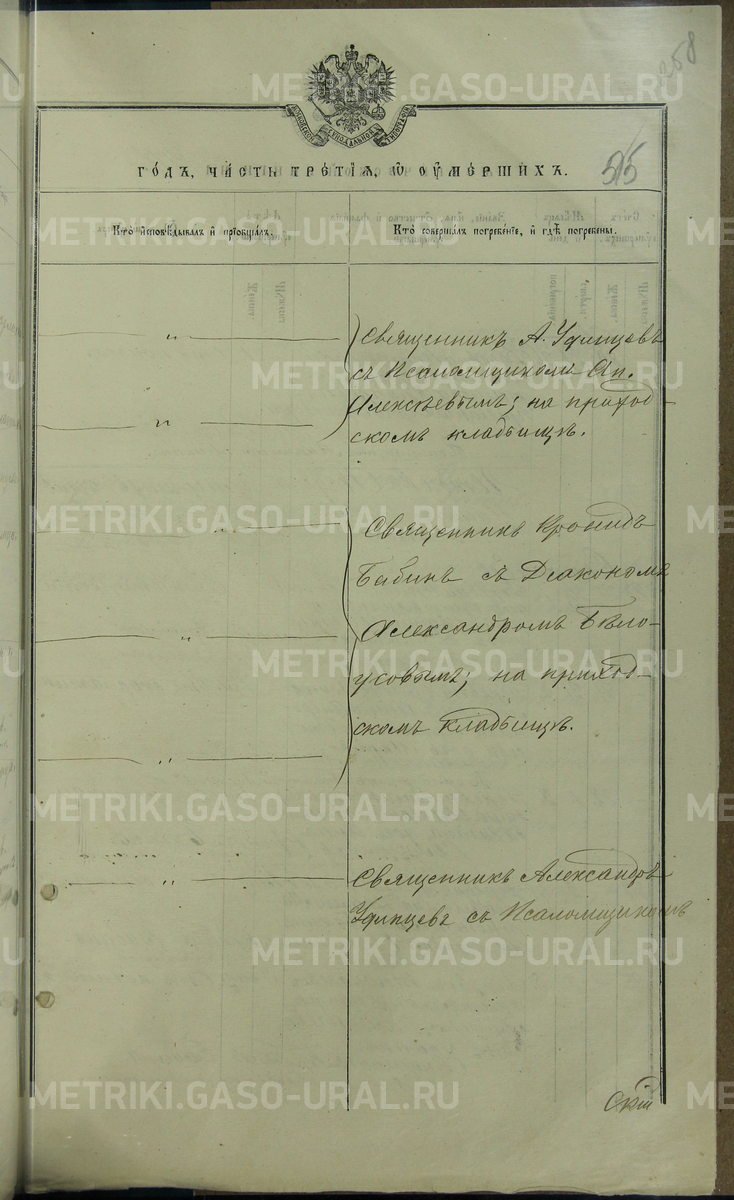 258
ГОДЪ, ЧАСТЬ ТРЕТІЯ, Ѡ ОУМЕРШИХЪ.
515
Кто исповѣдывалъ и пріобщалъ.
Кто совершалъ погребеніе, и гдѣ погребены.
Священникъ А. Удинцевъ
съ Псаломщикомъ Ап.
Алексѣевымъ; на приход-
скомъ кладбищѣ.
Священникъ
Бабинъ съ Діакономъ
Александромъ Бѣло-
усовымъ; на приход-
скомъ кладбищѣ.
Священникъ Александръ
Удинцевъ съ Псаломщикомъ
скій
METRIKI.GASO-URAL.RU